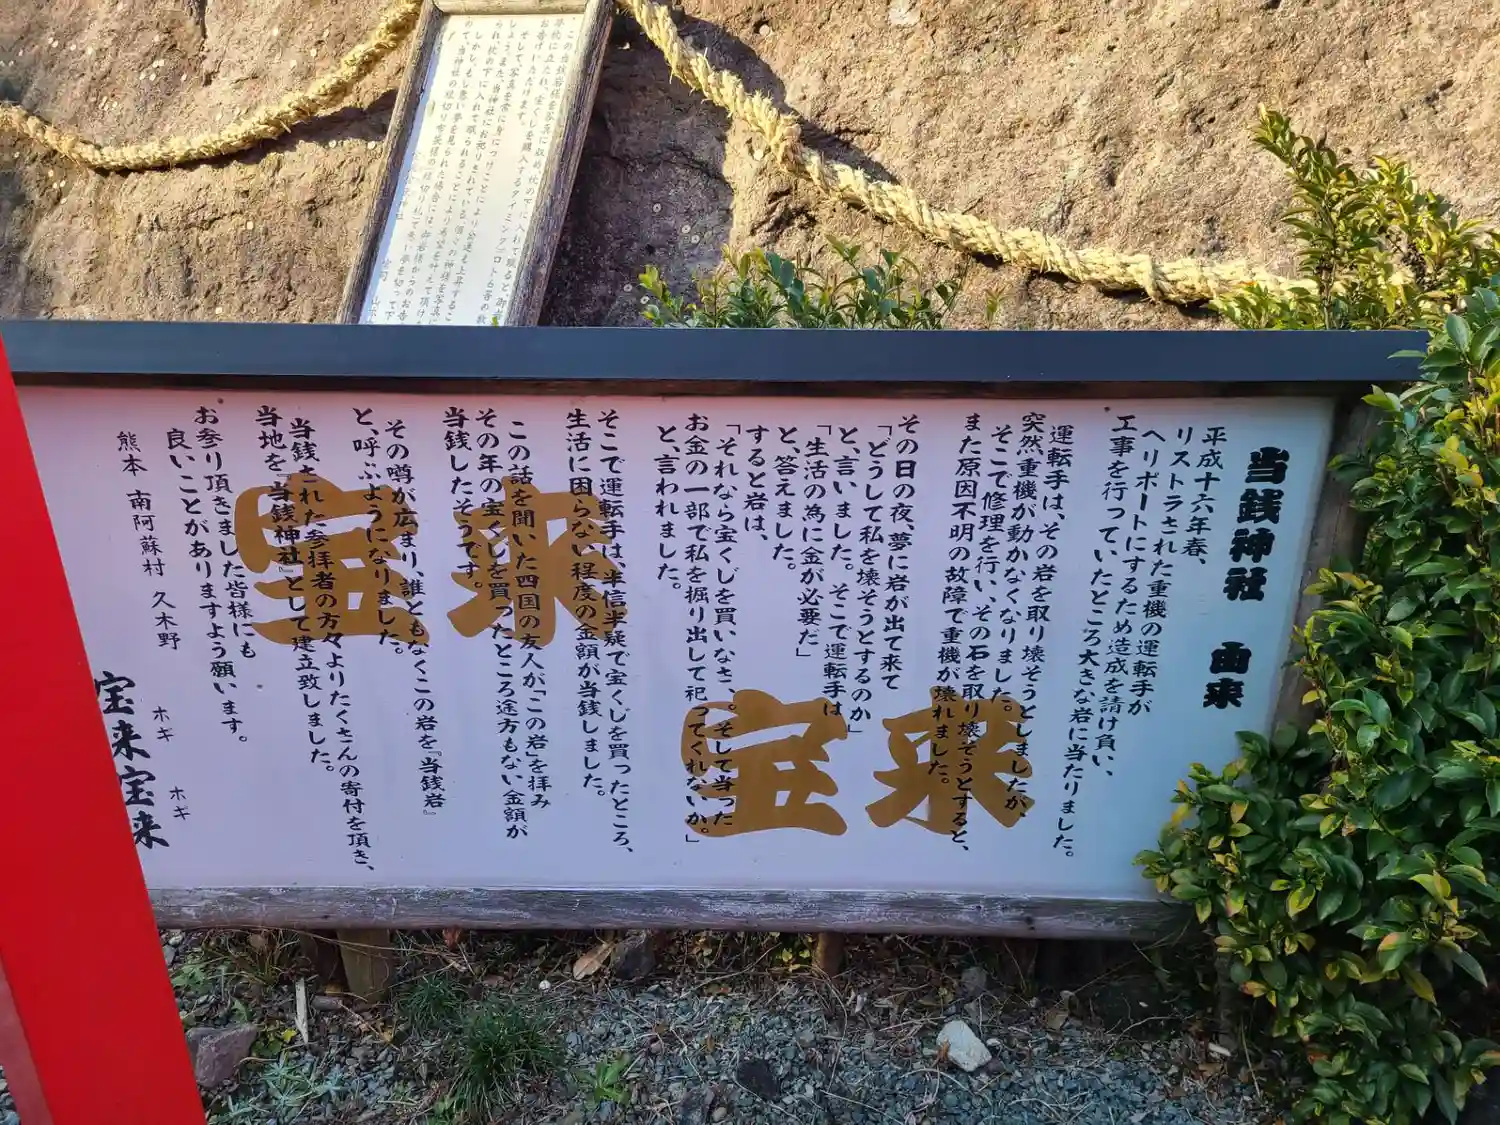 当銭神社 由来
平成十六年春、
リストラされた重機の運転手が
ヘリポートにするため造成を請け負い、
工事を行っていたところ大きな岩に当たりました。
運転手は、その岩を取り壊そうとしましたが、
突然、重機が動かなくなりました。
そこで修理を行い、その石を取り壊そうとすると、
また原因不明の故障で重機が壊れました。
その日の夜、夢に岩が出て来て
「どうして私を壊そうとするのか」
と、言いました。そこで運転手は
「生活の為に金が必要だ」
と、答えました。
すると岩は、
「それなら宝くじを買いなさい。そして当った
お金の一部で私を掘り出して祀ってくれないか。」
と、言われました。
そこで運転手は、半信半疑で宝くじを買ったところ、
生活に困らない程度の金額が当銭しました。
この話を聞いた四国の友人が「この岩」を拝み
その年の宝くじを買ったところ途方もない金額が
当銭したそうです。
その噂が広まり、誰ともなくこの岩を『当銭岩』
と、呼ぶようになりました。
当銭された参拝者の方々よりたくさんの寄付を頂き、
当地を『当銭神社』として建立致しました。
お参り頂きました皆様にも
良いことがありますよう願います。
熊本 南阿蘇村 久木野
ホギ ホギ
宝来宝来
宝来
宝来
そして、写真を常に身につけことにより金運も上昇するこ